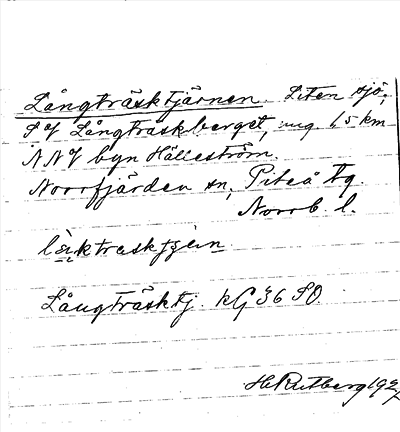 Långträsktjärnen. Liten sjö,
S of Långträskberget, ung. 1,5 km
NNV byn Hälleström.
Norrfjärden sn, Piteå tg.
Norrb. l.
Långträsktj. kG 36 SO
H. Rutberg 1927